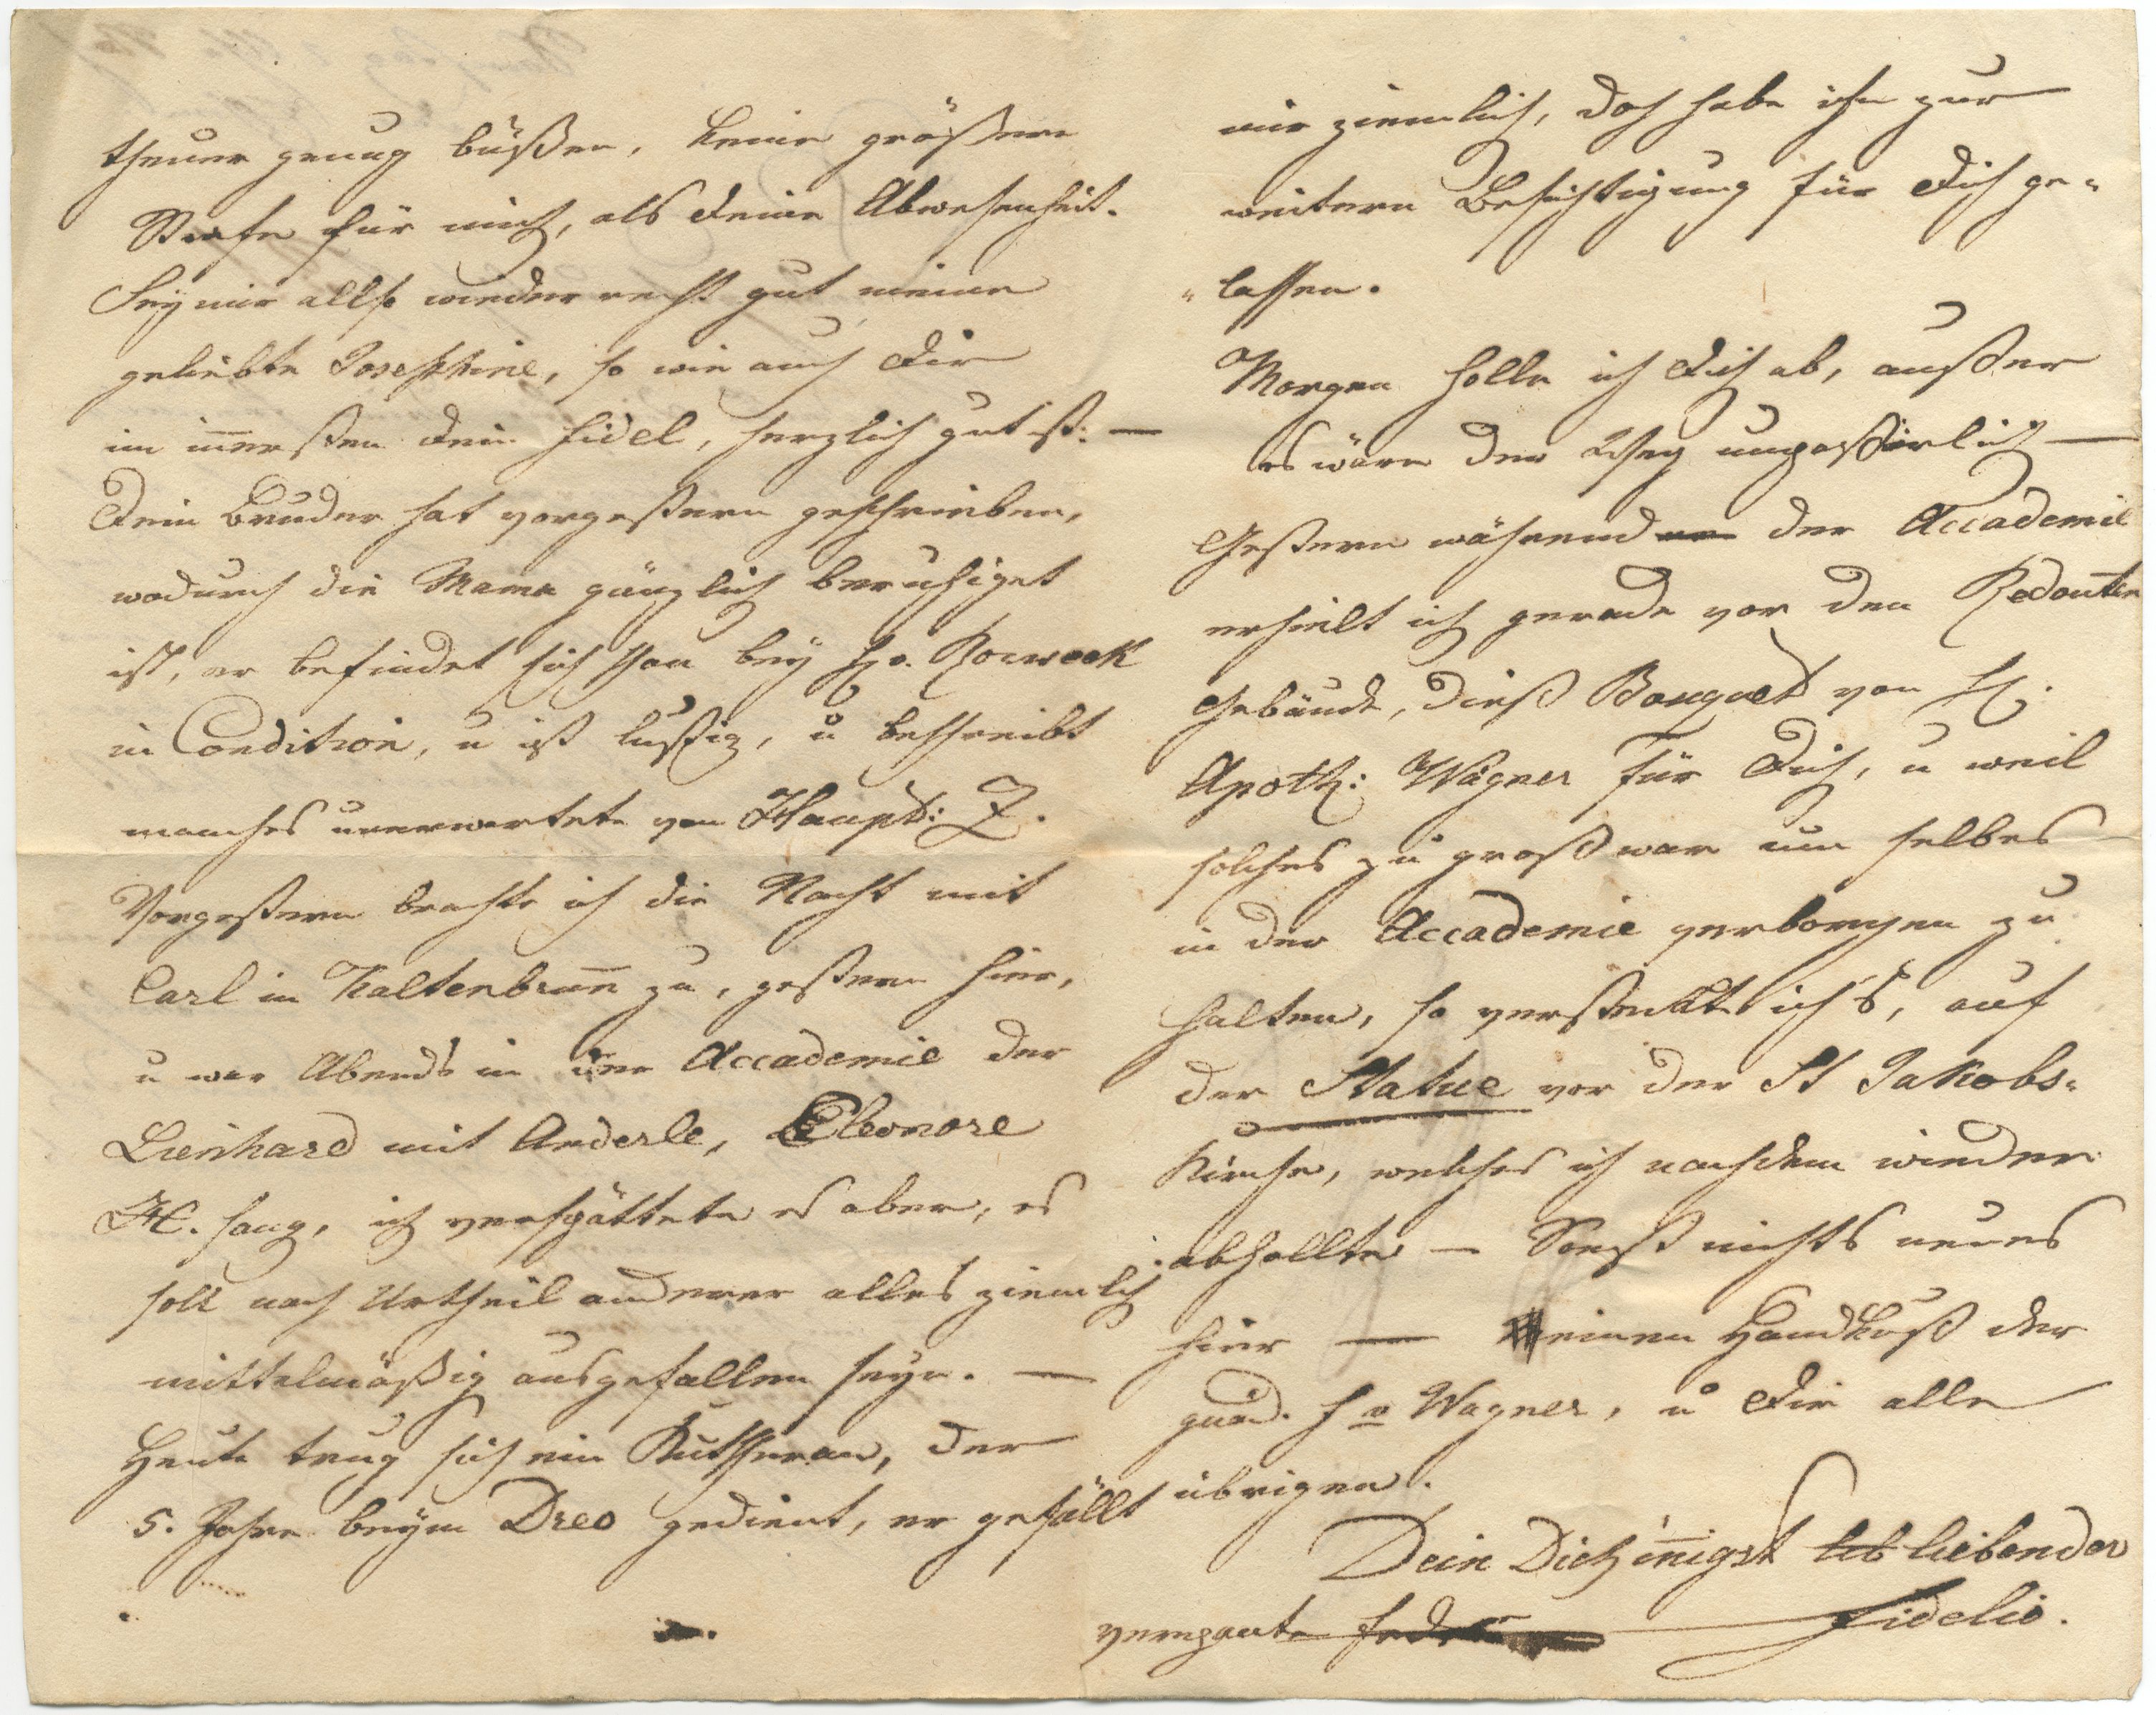 theuer genug büßen, keine größere
Strafe für mich, als deine Abwesenheit.
Sey mir allso wieder recht gut meine
geliebte Josephine, so wie auch Dir
im innersten dein Fidel, herzlich gut ist. —
Dein Bruder hat vorgestern geschrieben,
wodurch die Mama gänzlich beruhiget
ist, er befindet sich schon bey Hr.
in Condition, u ist lustig, u beschreibt
manches unerwartete von Haupt: Z.
Vorgestern brachte ich die Nacht mit
Carl in Kaltenbrunn zu, gestern hier,
u war Abends in der Accademie der
Lienhard mit Anderle, Eleonore
H. sang, ich verspättete es aber, es
soll nach Urtheil anderer alles ziemlich
mittelmäßig ausgefallen seyn. —
Heute trug sich ein an, der
5. Jahre beym Dreo gedient, er gefällt
mir ziemlich, doch habe ihn zur
weitern Besichtigung für Dich ge-
"lassen.
Morgen holle ich Dich ab, außer
es wäre der Weg unpassirlich —
Gestern während der Accademie
erhielt ich gerade vor den Redouten
Gebäude, dieß Bouquet von H:
Apoth: Wagner für Dich, u weil
solches zu groß war um selbes
in der Accademie verborgen zu
halten, so versteckte ich's, auf
der Statue vor der St Jakobs-
Kirche, welches ich nachdem wieder
abhollte — Sonst nichts neues
hier — meinen Handkuß der
gnäd. F v Wagner, u Dir alle
übrigen.
Dein Dich innigst lieb liebender
Fidelio.